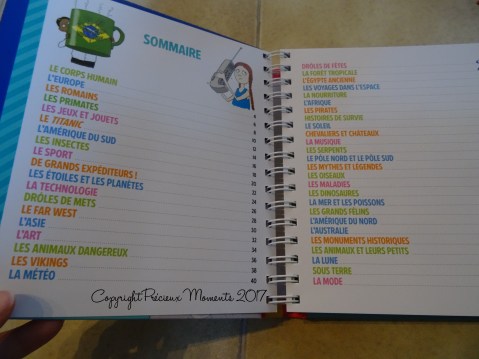 SOMMAIRE
LE CORPS HUMAIN
L'EUROPE
LES ROMAINS 4
LES PRIMATES 6
LES JEUX ET JOUETS 8
LE TITANIC 10
L'AMÉRIQUE DU SUD 12
LES INSECTES 14
LE SPORT 16
DE GRANDS EXPÉDITEURS ! 18
LES ÉTOILES ET LES PLANÈTES 20
LA TECHNOLOGIE
DRÔLES DE METS
LE FAR WEST
L'ASIE
L'ART
LES ANIMAUX DANGEREUX
LES VIKINGS 38
LA MÉTÉO 40
DRÔLES DE FÊTES
LA FORÊT TROPICALE
L'ÉGYPTE ANCIENNE
LES VOYAGES DANS L'ESPACE
LA NOURRITURE
L'AFRIQUE
LES PIRATES
HISTOIRES DE SURVIE
LE SOLEIL
CHEVALIERS ET CHÂTEAUX
LA MUSIQUE
LES SERPENTS
LE PÔLE NORD ET LE PÔLE SUD
LES MYTHES ET LÉGENDES
LES OISEAUX
LES MALADIES
LES DINOSAURES
LA MER ET LES POISSONS
LES GRANDS FÉLINS
L'AMÉRIQUE DU NORD
L'AUSTRALIE
LES MONUMENTS HISTORIQUES
LES ANIMAUX ET LEURS PETITS
LA LUNE
SOUS TERRE
LA MODE
Copyright Précieux Moments 2017